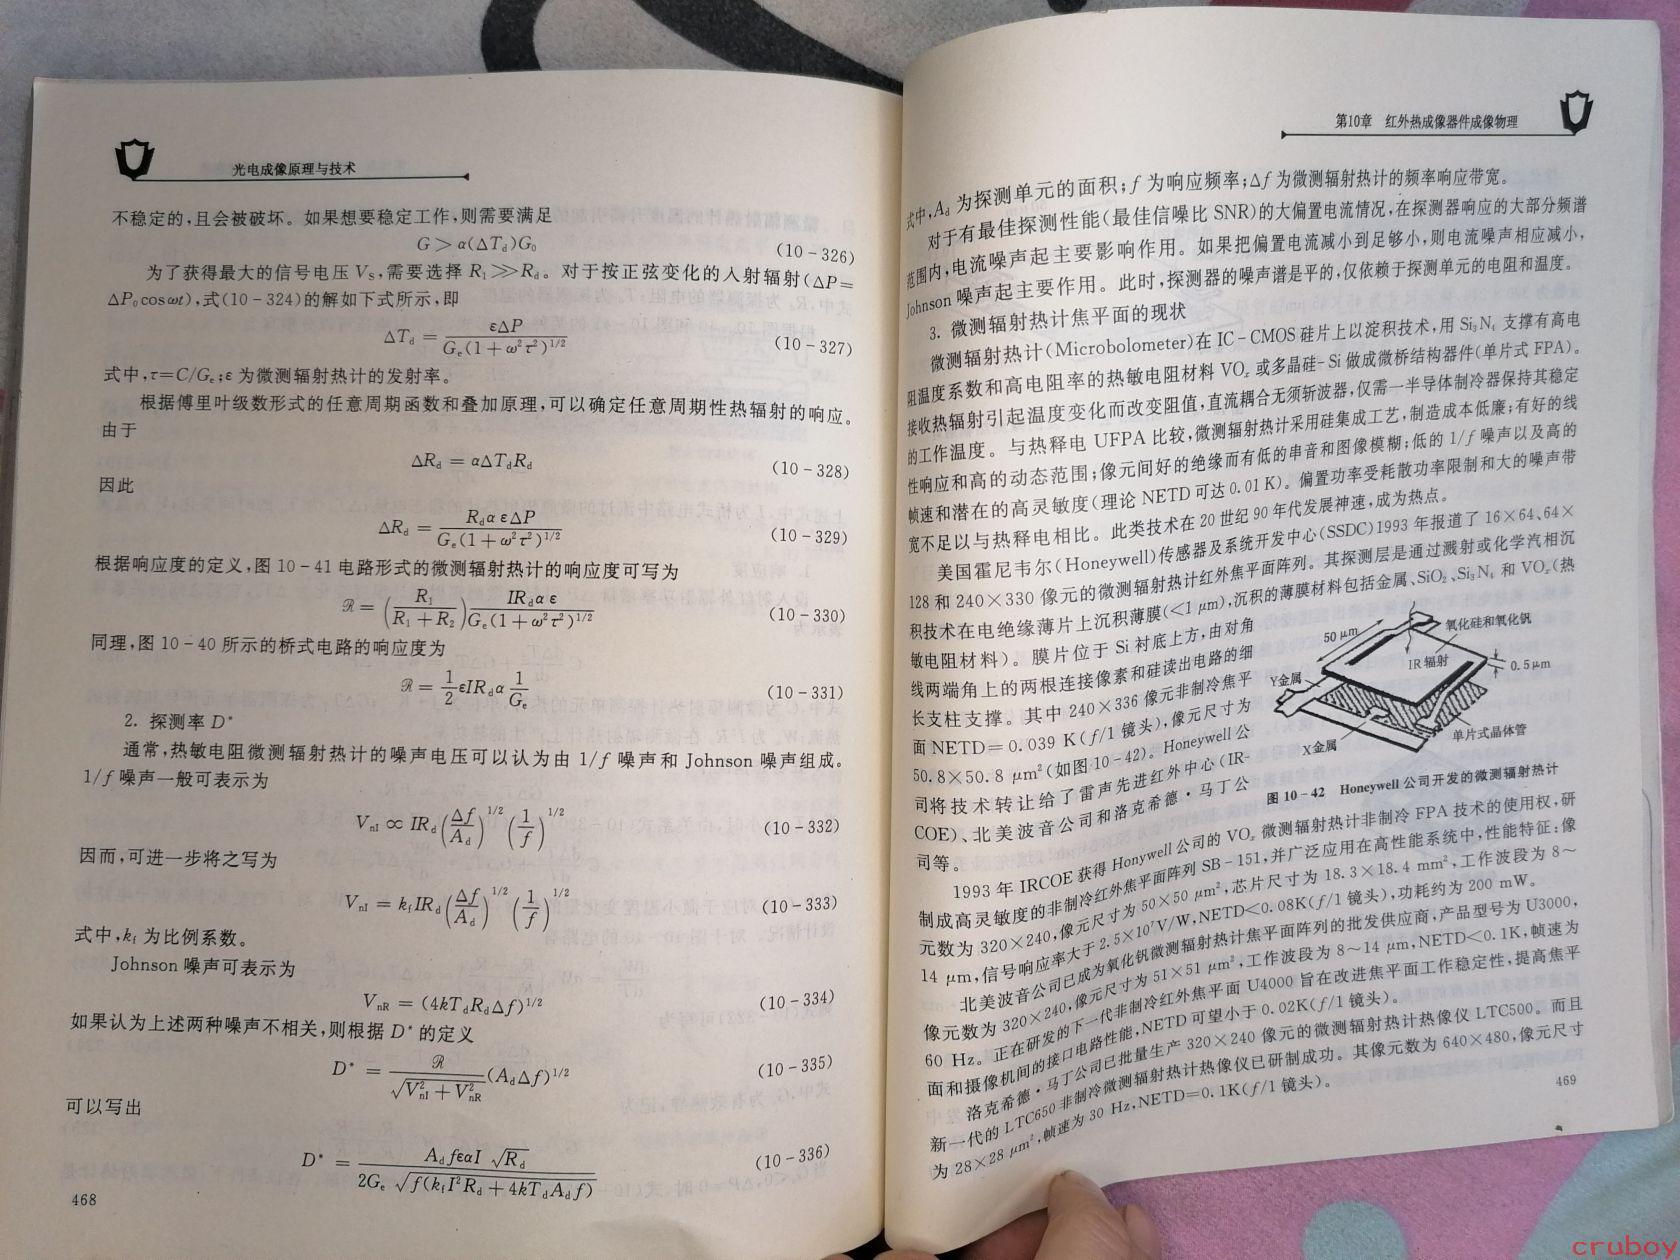 光电成像原理与技术
不稳定的,且会被破坏。如果想要稳定工作,则需要满足
G > α(ΔT_d)G_0 (10-326)
为了获得最大的信号电压 V_S,需要选择 R_1≫R_d。对于按正弦变化的入射辐射(ΔP=
ΔP_0cosωt),式(10-324)的解如下式所示,即
ΔT_d = εΔP / G_e(1+ω²τ²)^{1/2} (10-327)
式中,τ=C/G_e;ε 为微测辐射热计的发射率。
根据傅里叶级数形式的任意周期函数和叠加原理,可以确定任意周期性热辐射的响应。
由于
ΔR_d = αΔT_dR_d (10-328)
因此
ΔR_d = R_dαεΔP / G_e(1+ω²τ²)^{1/2} (10-329)
根据响应度的定义,图 10-41 电路形式的微测辐射热计的响应度可写为
ℛ = (R_1 / R_1+R_2) IR_dαε / G_e(1+ω²τ²)^{1/2} (10-330)
同理,图 10-40 所示的桥式电路的响应度为
ℛ = 1/2 εIR_dα 1/G_e (10-331)
2. 探测率 D*
通常,热敏电阻微测辐射热计的噪声电压可以认为由 1/f 噪声和 Johnson 噪声组成。
1/f 噪声一般可表示为
V_nI ∝ IR_d(Δf/A_d)^{1/2}(1/f)^{1/2} (10-332)
因而,可进一步将之写为
V_nI = k_fIR_d(Δf/A_d)^{1/2}(1/f)^{1/2} (10-333)
式中,k_f 为比例系数。
Johnson 噪声可表示为
V_nR = (4kT_dR_dΔf)^{1/2} (10-334)
如果认为上述两种噪声不相关,则根据 D* 的定义
D* = ℛ / √(V²_nI+V²_nR) (A_dΔf)^{1/2} (10-335)
可以写出
D* = A_dfεαI √R_d / 2G_e √f(k_fI²R_d+4kT_dA_df) (10-336)
468
第10章 红外热成像器件成像物理
式中,A_d 为探测单元的面积;f 为响应频率;Δf 为微测辐射热计的频率响应带宽。
对于有最佳探测性能(最佳信噪比 SNR)的大偏置电流情况,在探测器响应的大部分频谱
范围内,电流噪声起主要影响作用。如果把偏置电流减小到足够小,则电流噪声相应减小,
Johnson 噪声起主要作用。此时,探测器的噪声谱是平的,仅依赖于探测单元的电阻和温度。
3. 微测辐射热计焦平面的现状
微测辐射热计(Microbolometer)在 IC-CMOS 硅片上以淀积技术,用 Si₃N₄ 支撑有高电
阻温度系数和高电阻率的热敏电阻材料 VOₓ 或多晶硅-Si 做成微桥结构器件(单片式 FPA)。
接收热辐射引起温度变化而改变阻值,直流耦合无须斩波器,仅需一半导体制冷器保持其稳定
的工作温度。与热释电 UFPA 比较,微测辐射热计采用硅集成工艺,制造成本低廉;有好的线
性响应和高的动态范围;像元间好的绝缘而有低的串音和图像模糊;低的 1/f 噪声以及高的
帧速和潜在的高灵敏度(理论 NETD 可达 0.01 K)。偏置功率受耗散功率限制和大的噪声带
宽不足以与热释电相比。此类技术在 20 世纪 90 年代发展神速,成为热点。
美国霍尼韦尔(Honeywell)传感器及系统开发中心(SSDC)1993 年报道了 16×64、64×
128 和 240×330 像元的微测辐射热计红外焦平面阵列。其探测层是通过溅射或化学汽相沉
积技术在电绝缘薄片上沉积薄膜(<1 μm),沉积的薄膜材料包括金属、SiO₂、Si₃N₄ 和 VOₓ(热
敏电阻材料)。膜片位于 Si 衬底上方,由对角
线两端角上的两根连接像素和硅读出电路的细
长支柱支撑。其中 240×336 像元非制冷焦平
面 NETD=0.039 K(f/1 镜头),像元尺寸为
50.8×50.8 μm²(如图 10-42)。Honeywell 公
司将技术转让给了雷声先进红外中心(IR-
COE)、北美波音公司和洛克希德·马丁公
司等。
50 μm
氧化硅和氧化钒
IR辐射
0.5μm
Y金属
X金属
单片式晶体管
图 10-42 Honeywell 公司开发的微测辐射热计
1993 年 IRCOE 获得 Honywell 公司的 VOₓ 微测辐射热计非制冷 FPA 技术的使用权,研
制成高灵敏度的非制冷红外焦平面阵列 SB-151,并广泛应用在高性能系统中,性能特征:像
元数为 320×240,像元尺寸为 50×50 μm²,芯片尺寸为 18.3×18.4 mm²,工作波段为 8～
14 μm,信号响应率大于 2.5×10⁷V/W,NETD<0.08K(f/1 镜头),功耗约为 200 mW。
北美波音公司已成为氧化钒微测辐射热计焦平面阵列的批发供应商,产品型号为 U3000,
像元数为 320×240,像元尺寸为 51×51 μm²,工作波段为 8～14 μm,NETD<0.1K,帧速为
60 Hz。正在研发的下一代非制冷红外焦平面 U4000 旨在改进焦平面工作稳定性,提高焦平
面和摄像机间的接口电路性能,NETD 可望小于 0.02K(f/1 镜头)。
洛克希德·马丁公司已批量生产 320×240 像元的微测辐射热计热像仪 LTC500。而且
新一代的 LTC650 非制冷微测辐射热计热像仪已研制成功。其像元数为 640×480,像元尺寸
为 28×28 μm²,帧速为 30 Hz,NETD=0.1K(f/1 镜头)。
469
cruboy